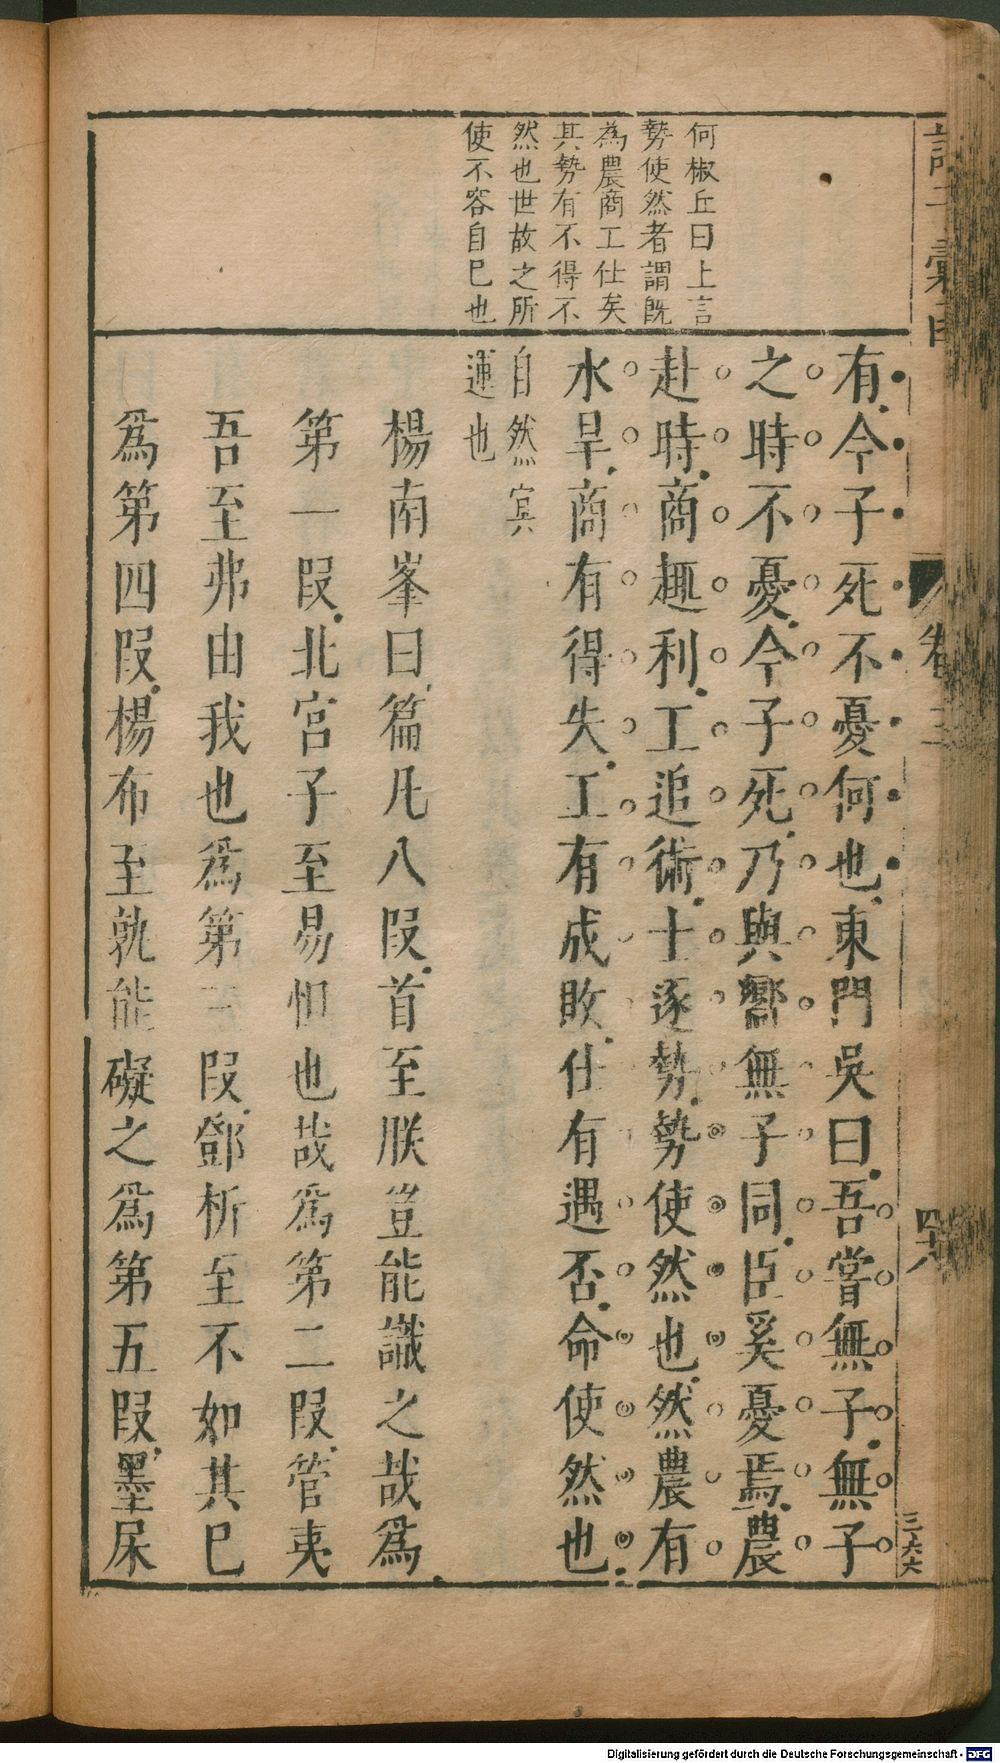 何椒丘曰上言
勢使然者謂既
為農商工仕矣
其勢有不得不
然也世故之所
使不容自已也
有今子死不憂何也東門吳曰吾嘗無子無子
之時不憂今子死乃與嚮無子同臣奚憂焉農
赴時商趣利工追術士逐勢勢使然也然農有
水旱商有得失工有成敗仕有遇否命使然也
自然冥
運也
楊南峯曰篇凡八段首至朕豈能識之哉為
第一段北宮子至易怛也哉為第二段管夷
吾至弗由我也為第三段鄧析至不如其已
為第四段楊布至孰能礙之為第五段墨杘
卷
三六六
Digitalisierung gefördert durch die Deutsche Forschungsgemeinschaft - DFG